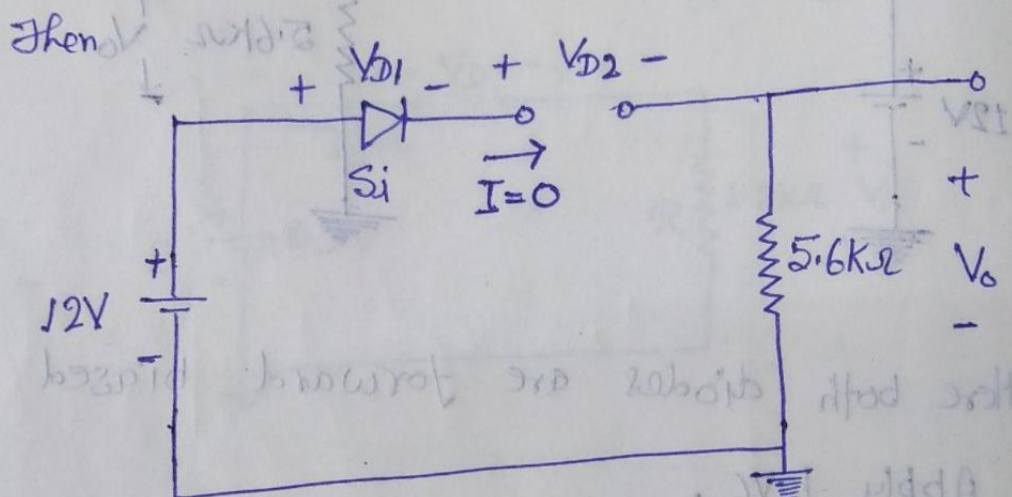 Then
+ VD1 - + VD2 -
Si
I=0
+
12V
-
+
5.6KΩ
Vo
-